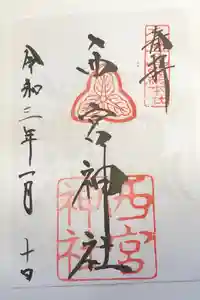 奉拝
西宮神社
西宮
神社
令和三年一月十日